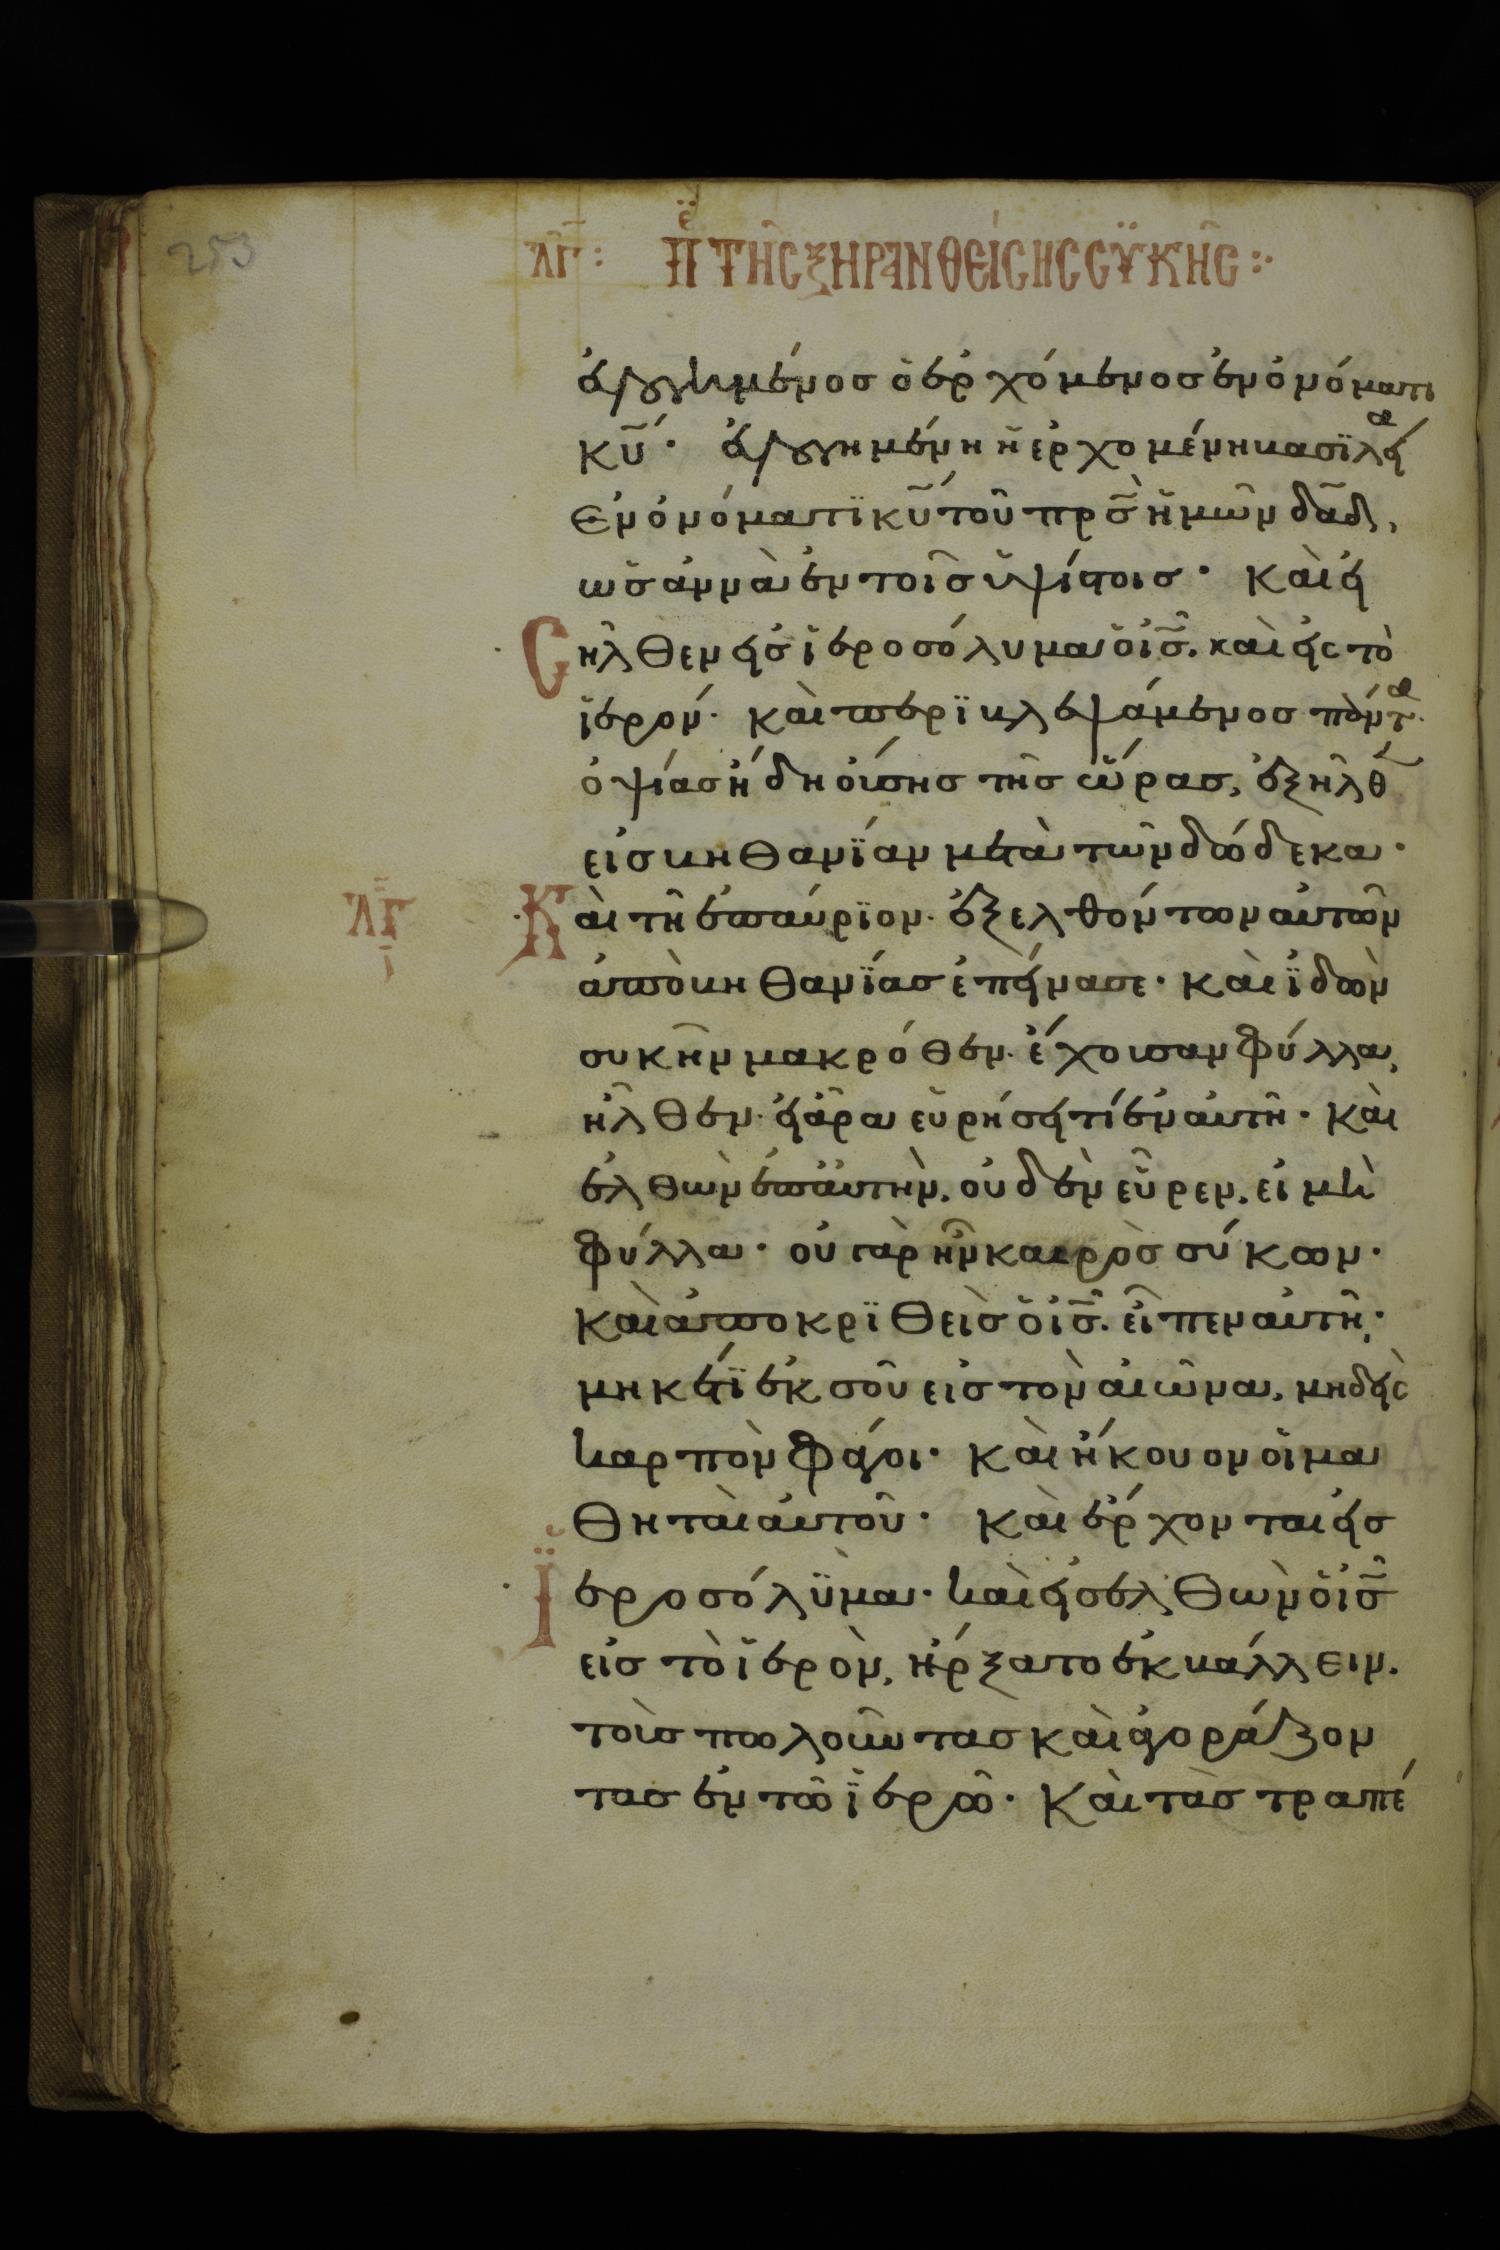 253
λγ: πε τῆς ξηρανθείσης συκῆς:
εὐλογημένος ὁ ἐρχόμενος ἐν ὀνόματι
κυ· εὐλογημένη ἡ ἐρχομένη βασϊλεία
ἐν ὀνόματϊ κυ τοῦ πρσ ἡμῶν δαδ,
ὡσαννὰ ἐν τοῖς ὑψίστοις· Καὶ εἰ
σῆλθεν εἰς ἱεροσόλυμα ὁ ισ. καὶ εἰς τὸ
ἱερόν· καὶ περϊβλεψάμενος πάντα·
ὀψίας ἤδη οὔσης τῆς ὥρας, ἐξῆλθεν
εἰς βηθανΐαν μετὰ τῶν δώδεκα·
λγ
ι
Καὶ τῆ ἐπαύρϊον· ἐξελθόντων αὐτῶν
ἀπὸ βηθανΐας ἐπείνασε· καὶ ἰδὼν
συκῆν μακρόθεν· ἔχουσαν φύλλα,
ἦλθεν· εἰ ἄρα εὑρήσει τί ἐν αὐτῆ· καὶ
ἐλθὼν ἐπ' αὐτὴν, οὐδὲν εὗρεν, εἰ μὴ
φύλλα· οὐ γὰρ ἦν καιρὸς σύκων·
Καὶ ἀποκρϊθεὶς ὁ ισ. εἶπεν αὐτῆ·
μηκέτϊ ἐκ σοῦ εἰς τὸν αἰῶνα, μηδεὶς
καρπὸν φάγοι· Καὶ ἤκουον οἱ μα
θηταὶ αὐτοῦ· Καὶ ἔρχονται εἰς
Ἱεροσόλϋμα· καὶ εἰσελθὼν ὁ ισ
εἰς τὸ ἱερὸν, ἤρξατο ἐκβάλλειν.
τοὺς πωλοῦντας καὶ ἀγοράζον
τας ἐν τῶ ἱερῶ· Καὶ τὰς τραπέ